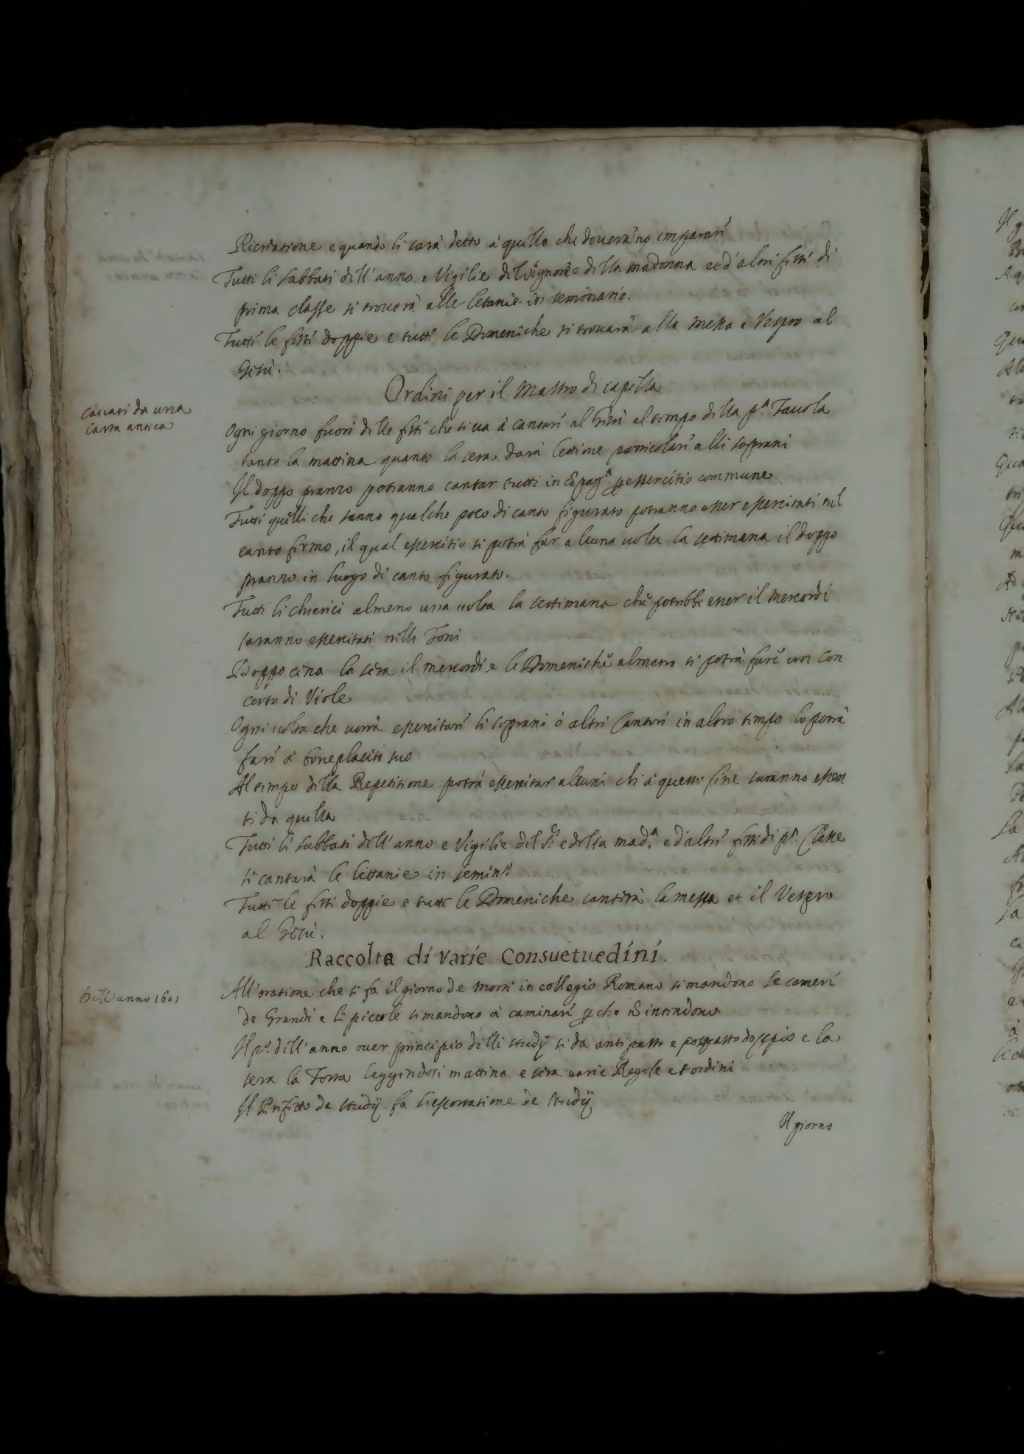 Ricriatione e quando li sarà detto à quello che doueranno imparare
Tutti li sabbati dell'anno e Vigilie del Signore e della Madonna et d'altri feste di
prima classe si trouerà alle letanie in seminario.
Tutte le feste doppie e tutte le Domeniche si trouarà alla messa e Vespro al
Giesù.
Ordini per il Mastro di capella
cauati da una
carta antica
Ogni giorno fuori delle feste che si ua à cantare al Giesù al tempo della pª Tauola
tanto la mattina quanto la sera darà lettione particolare alli soprani
Il doppo pranzo potranno cantar tutti in essercitio commune
Tutti quelli che sanno qualche poco di canto figurato potranno esser essercitati nel
canto fermo, il qual essercitio si potrà far alcuna uolta la settimana il doppo
pranzo in luogo di canto figurato.
Tutti li chierici almeno una uolta la settimana che potrebbe esser il mercordi
saranno essercitati nelli Toni
Doppo cena la sera il mercordi e le Domeniche almeno si potrà fare un con
certo di Viole
Ogni uolta che uorrà essercitare li soprani ò altri Cantori in altro tempo lo potrà
fare à beneplacito suo
Al tempo della Repetitione potrà essercitar alcuni che à questo fine saranno essen
ti da quella
Tutti li sabbati dell'anno e Vigilie del Sr. e della mad.ª e d'altre feste di pª. Classe
si cantarà le lettanie in semin.º
Tutte le feste doppie e tutte le Domeniche cantarà la messa et il Vespro
al Giesù.
Raccolta di varie Consuetuedini.
Dell'anno 1601
All'oratione che si fà il giorno de morti in collegio Romano si mandono le camere
de Grandi e le piccole si mandono à caminare perche non intendono
Il pº. dell'anno ouer principio delli studij si da antipasto e pospasto doppio e la
sera la Torta leggendosi mattina e sera uarie Regole et ordini
Il Prefetto de studij fa l'esortatione de studij
Il giorno